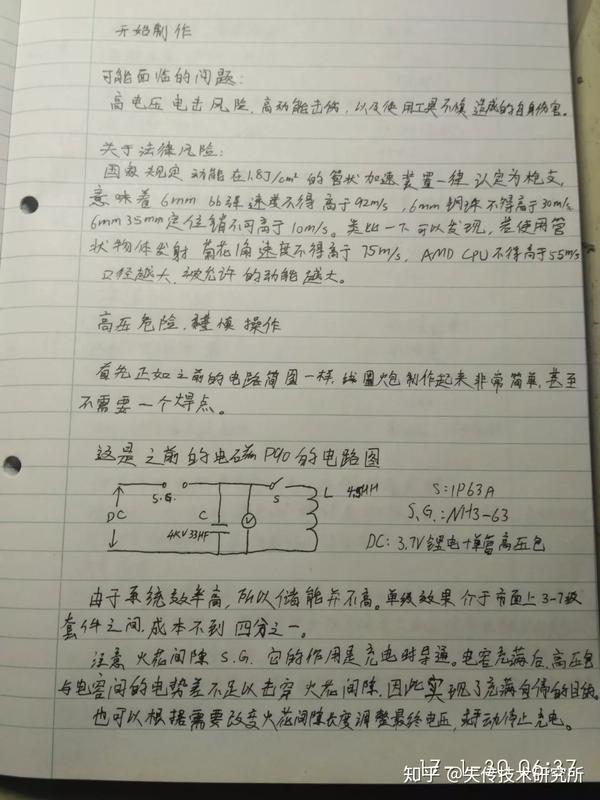 开始制作
可能面临的问题:
高电压电击风险,高动能击伤,以及使用工具不慎造成的自身伤害。
关于法律风险:
国家规定动能在1.8J/cm²的管状加速装置一律认定为枪支,
意味着6mm bb弹速度不得高于92m/s,6mm钢珠不得高于30m/s
6mm35mm定位销不可高于10m/s。类比一下可以发现,若使用管
状物体发射 菊花1角速度不得高于75m/s,AMD CPU不得高于55m/s
口径越大,被允许的动能越大。
高压危险,谨慎操作
首先正如之前的电路简图一样,线圈炮制作起来非常简单,甚至
不需要一个焊点。
这是之前的电磁P90的电路图
S.G. S L
DC C V
4KV33μF
S:1P63A
S.G.:NH3-63
DC:3.7V锂电+单管高压包
由于系统效率高,所以储能并不高。单级效果介于市面上3-7级
套件之间,成本不到四分之一。
注意 火花间隙S.G.它的作用是充电时导通。电容充满后,高压包
与电容间的电势差不足以击穿火花间隙,因此实现了充满自停的目的。
也可以根据需要改变火花间隙长度调整最终电压,或手动停止充电。
17-1-30 06:37
知乎 @矢传技术研究所